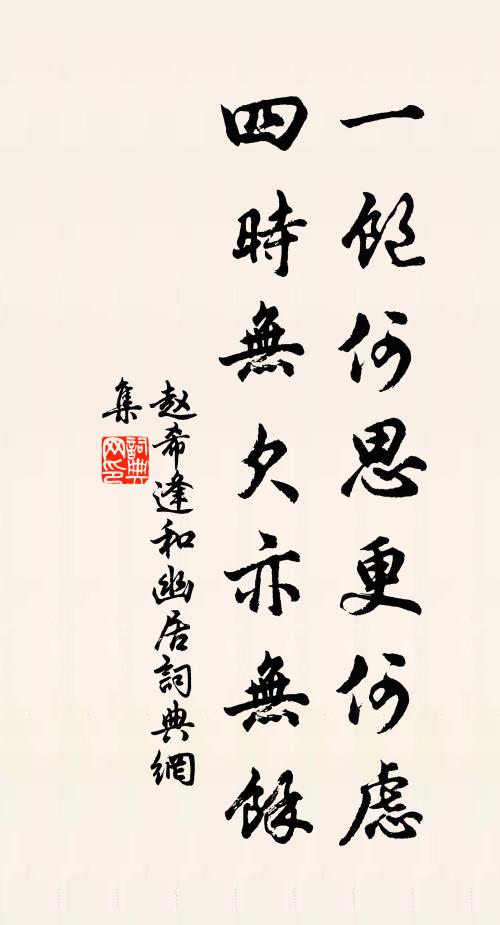 一飽何思更何慮
四時無欠亦無餘
赵希逢和幽居詞典網
集
詞典
网印